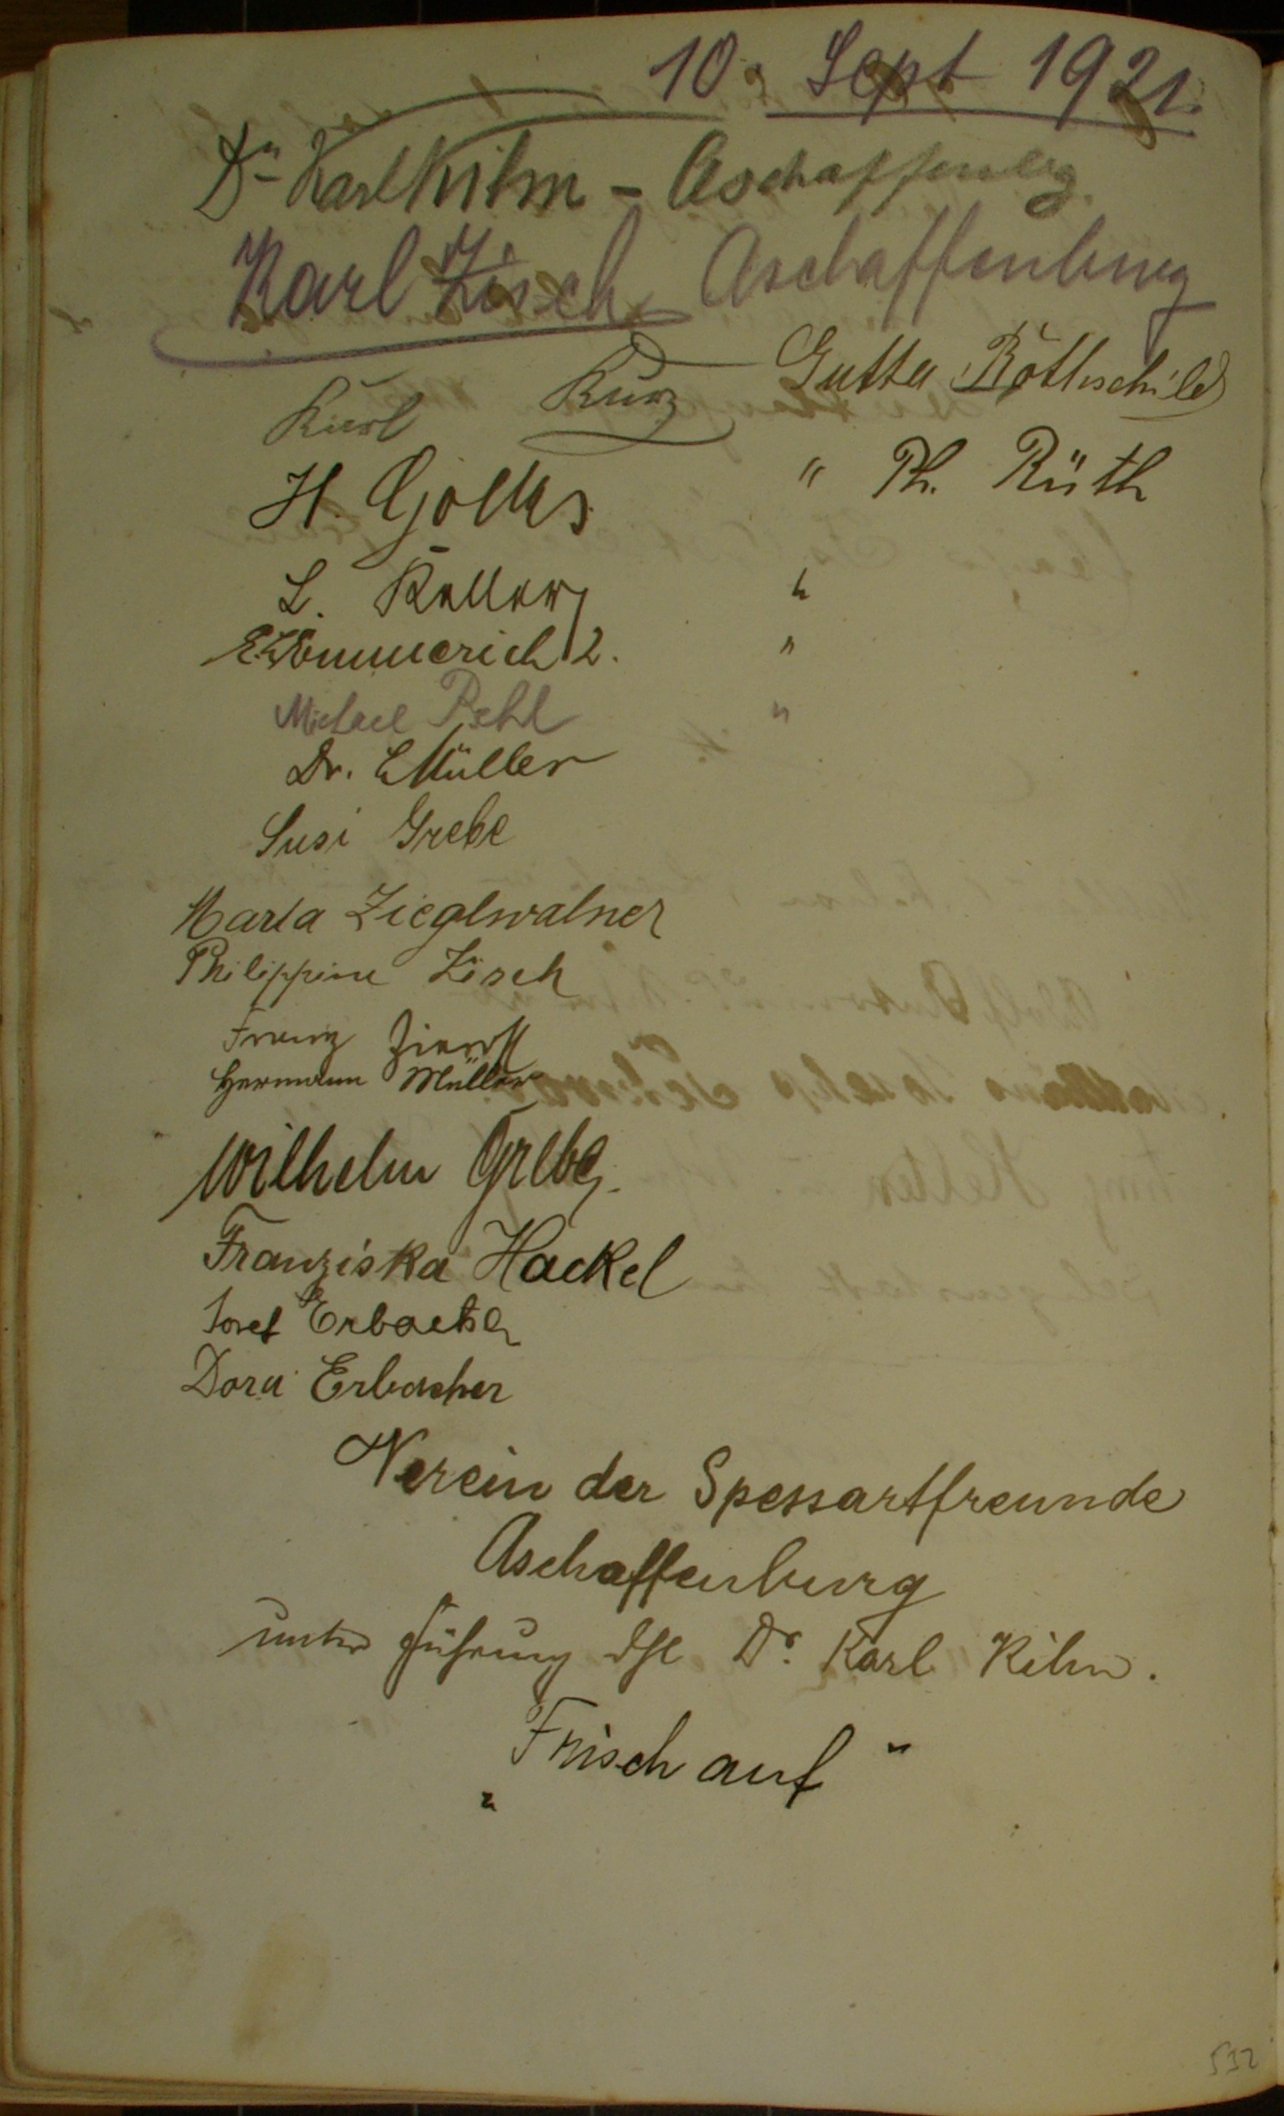 10. Sept 1921.
Dr Karl Kihn - Aschaffenbg.
Karl Zisch Aschaffenburg
Karl Kurz Gutta Rothschild
H. " Ph. Rüth
L. Keller "
E. Emmerich 2. "
Michael "
Dr. E Müller
Susi Grebe
Maria Zieglwalner
Philippine Zisch
Franz
Hermann Müller
Wilhelm Grebe.
Franziska Hackel
Josef Erbacher
Dora Erbacher
Verein der Spessartfreunde
Aschaffenburg
unter Führung Dr. Karl Kihn.
"Frisch auf"
532